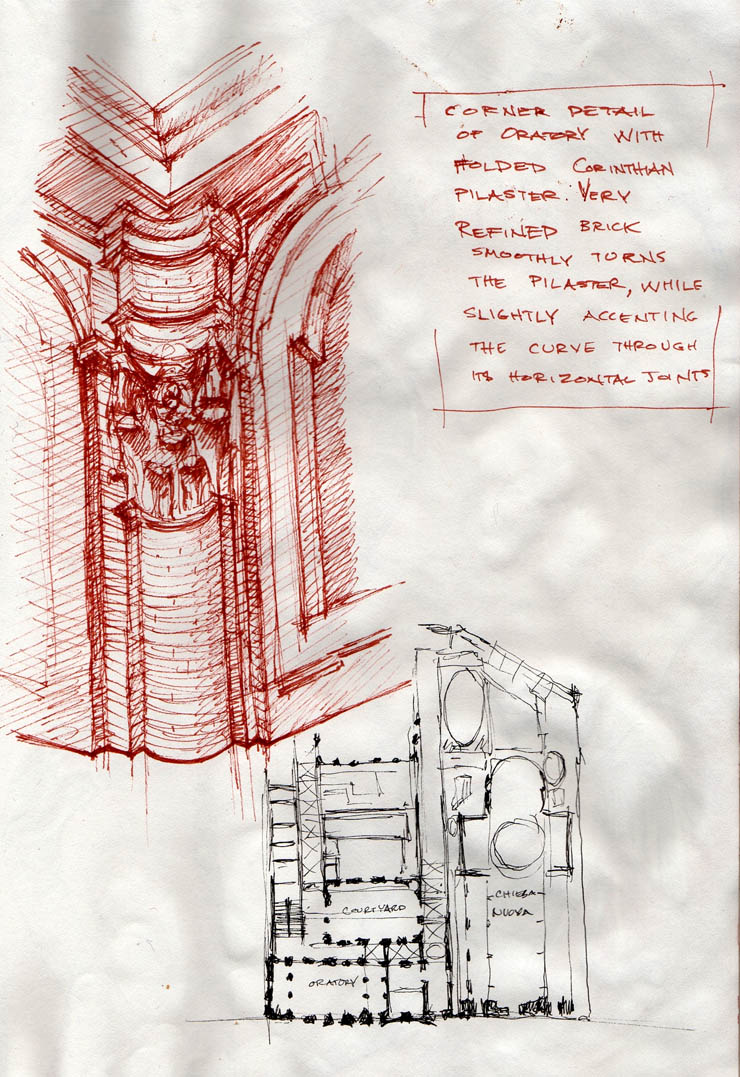 CORNER DETAIL
OF ORATORY WITH
FOLDED CORINTHIAN
PILASTER. VERY
REFINED BRICK
SMOOTHLY TURNS
THE PILASTER, WHILE
SLIGHTLY ACCENTING
THE CURVE THROUGH
ITS HORIZONTAL JOINTS
CHIESA
NUOVA
COURTYARD
ORATORY